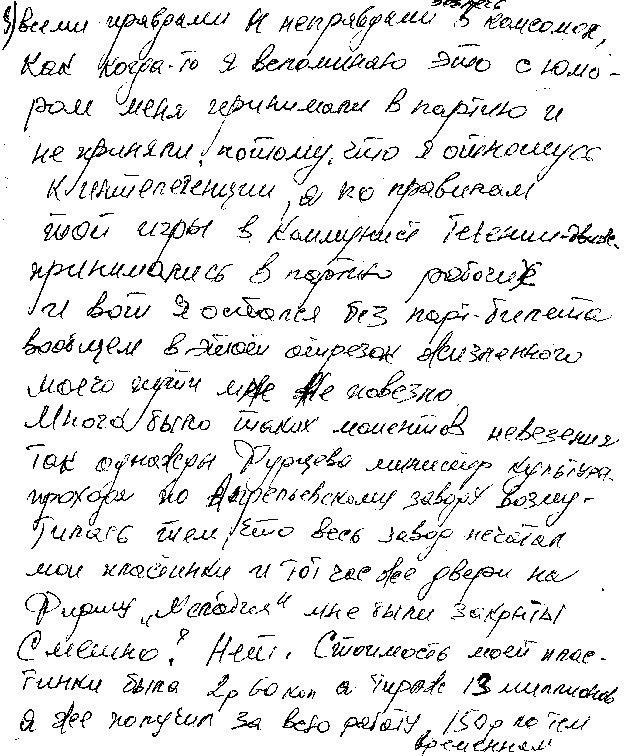 8) всеми правдами и неправдами влезть в комсомол,
как когда-то я вспоминаю это с юмо-
ром меня принимали в партию и
не приняли, потому, что я отношусь
к интелегенции, а по правилам
той игры в Коммунист Течении-движ.
принимались в партию рабочие
и вот я остался без парт-билета
вообщем в этом отрезок жизненного
моего пути мне не повезло.
Много было таких моментов невезения
Так однажды Фурцева министр культуры
проходя по Апрелевскому заводу возму-
тилась тем, что весь завод печатал
мои пластинки и тот час же двери на
Фирму „Мелодия" мне были закрыты
Смешно? Нет. Стоимость моей плас-
тинки была 2р 60 коп а тираж 13 миллионов
я же получил за всю работу 150р по тем
временам